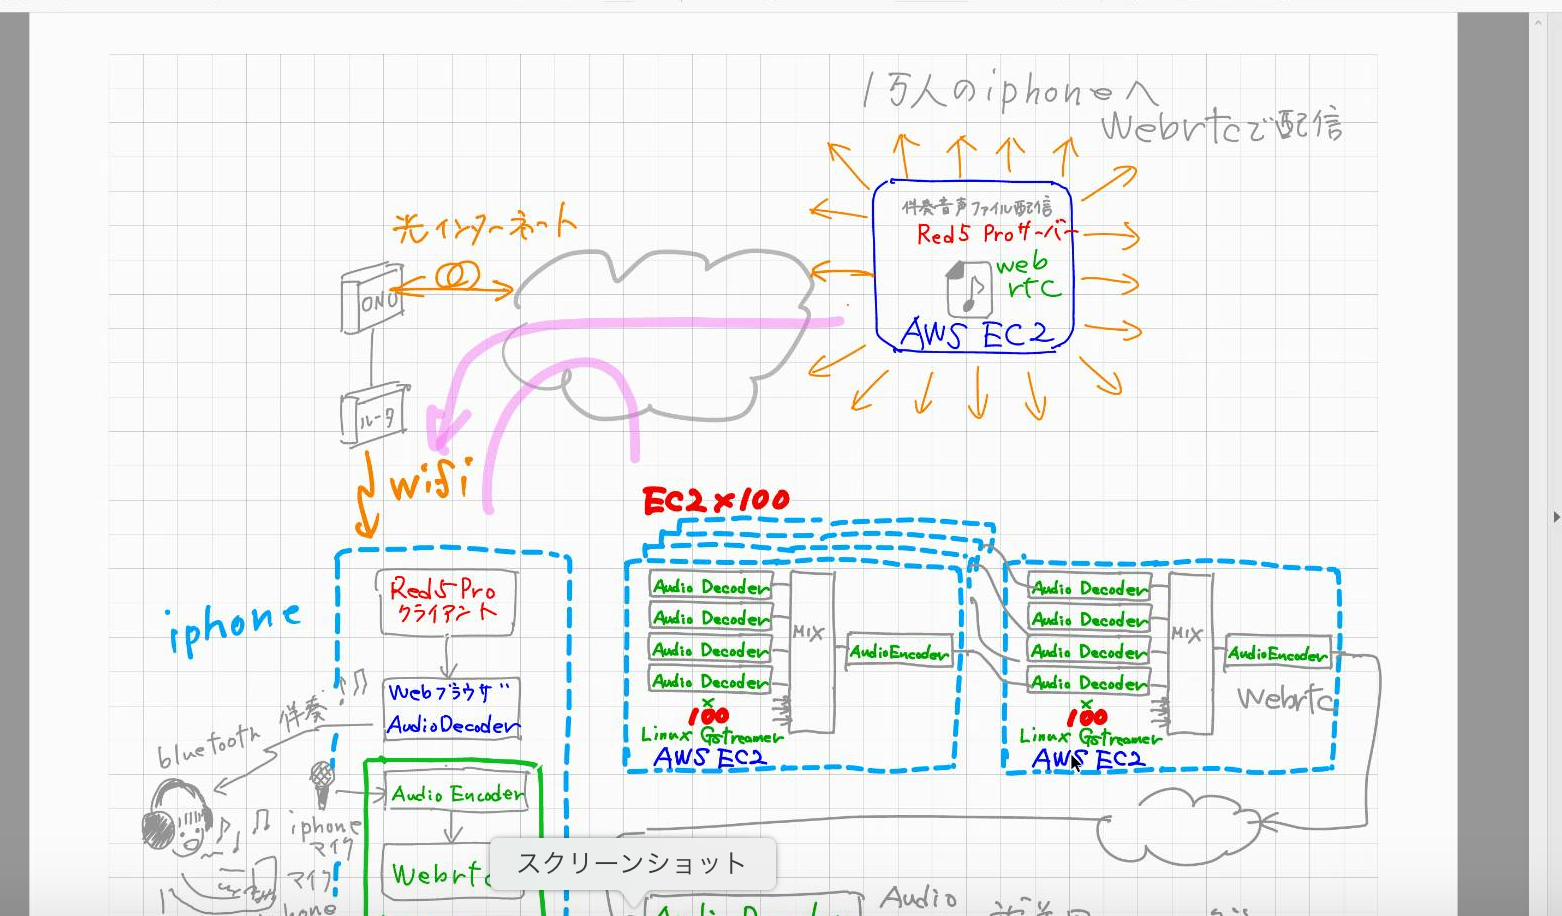 1万人のiphoneへ
Webrtcで配信
伴奏音声ファイル配信
Red5 Proサーバー
web
rtc
AWS EC2
光インターネット
ONU
ルータ
wifi
EC2×100
iphone
Red5Pro
クライアント
Webブラウザ
AudioDecoder
伴奏
bluetooth
Audio Encoder
iphone
マイク
マイク
Webrtc
Audio Decoder
Audio Decoder
Audio Decoder
Audio Decoder
×
100
MIX
AudioEncoder
Linux Gstreamer
AWS EC2
Audio Decoder
Audio Decoder
Audio Decoder
Audio Decoder
×
100
MIX
AudioEncoder
Webrtc
Linux Gstreamer
AWS EC2
スクリーンショット
Audio